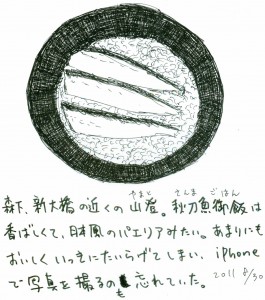 やまと さんま ごはん
森下、新大橋の近くの山登。秋刀魚御飯は
香ばしくて、日本風のパエリアみたい。あまりにも
おいしくいっきにたいらげてしまい、iPhone
で写真を撮るのも忘れていた。 2011 8/30